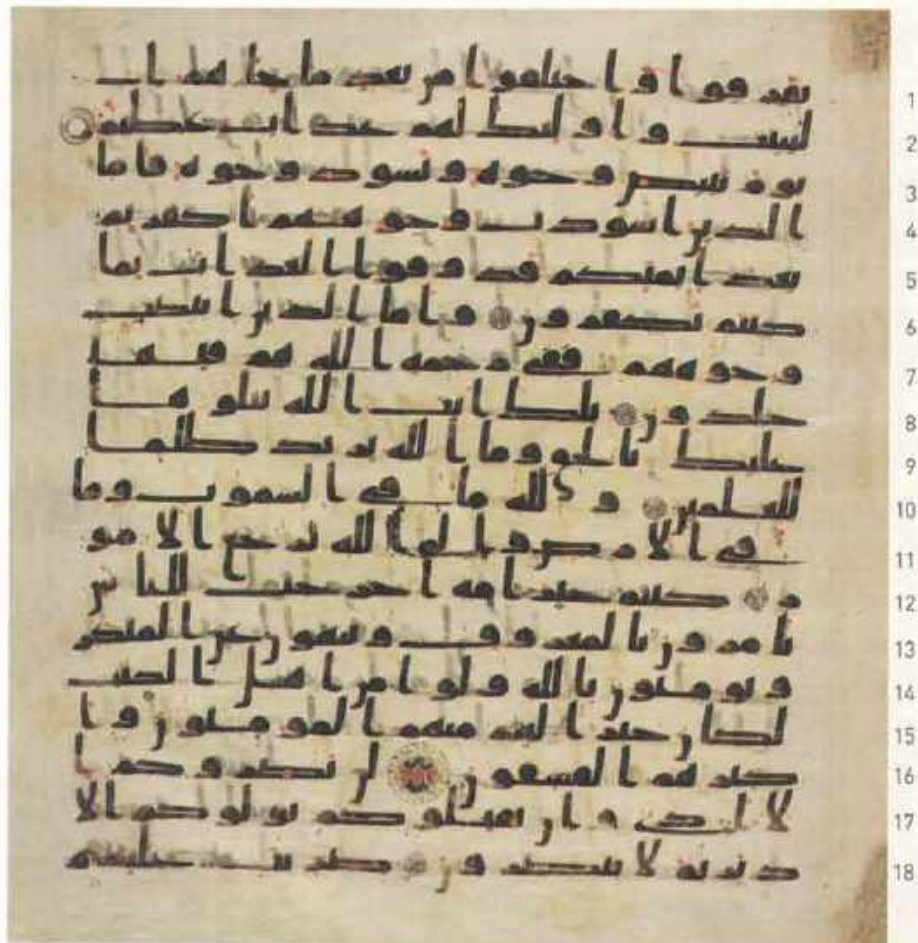 تفرقوا واختلفوا من بعد ما جاهم ا 1
لبينت واوليك لهم عذاب عظيم 2
يوم تبيض وجوه وتسود وجوه فاما 3
الذين اسودت وجوههم اكفرتم 4
بعد ايمنكم فذوقوا العذاب بما 5
كنتم تكفرون واما الذين ابيضت 6
وجوههم ففي رحمه الله هم فيها 7
خلدون تلك ايت الله نتلوها 8
عليك بالحق وما الله يريد ظلما 9
للعلمين ولله ما في السموت وما 10
في الارض والى الله ترجع الامو 11
ر كنتم خير امه اخرجت للناس 12
تامرون بالمعروف وتنهون عن المنكر 13
وتومنون بالله ولو امن اهل الكتب 14
لكان خيرا لهم منهم المومنون وا 15
كثرهم الفسقون لن يضروكم ا 16
لا اذى وان يقتلوكم يولوكم الا 17
دبر ثم لا ينصرون ضربت عليهم 18